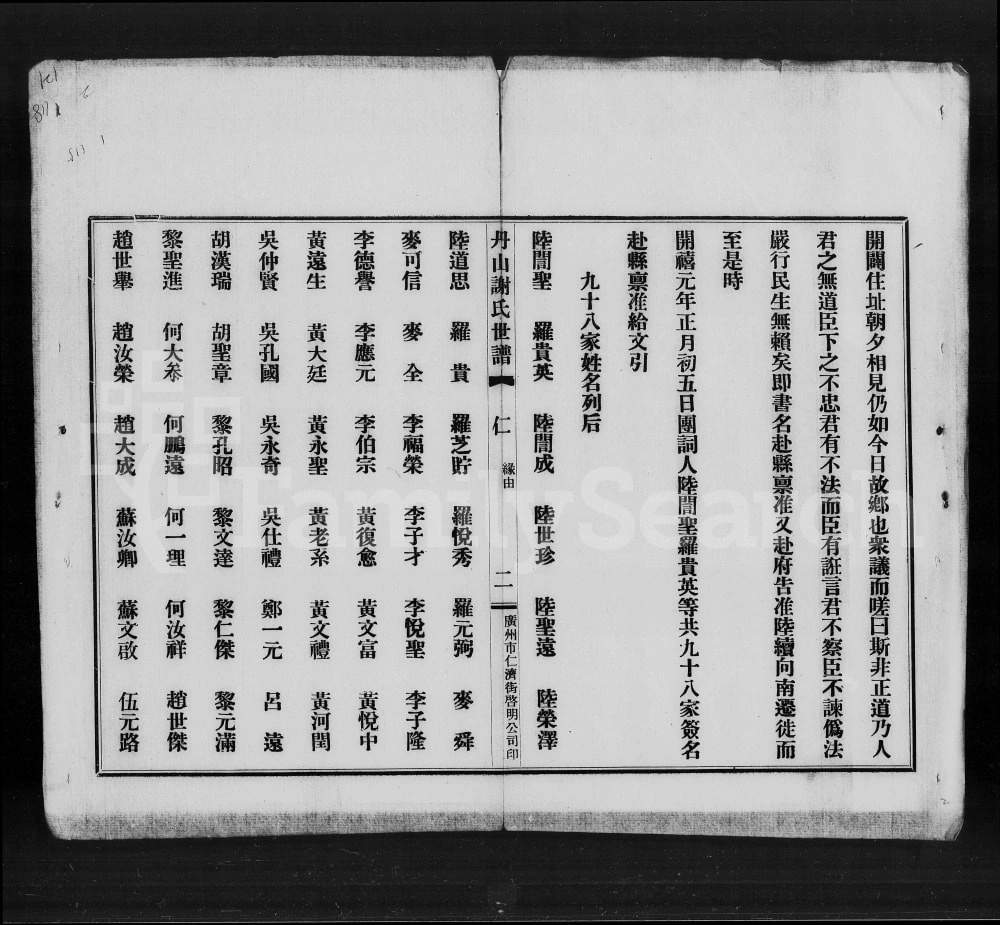 開闢住址朝夕相見仍如今日故鄉也衆議而嗟曰斯非正道乃人
君之無道臣下之不忠君有不法而臣有誑言君不察臣不諫僞法
嚴行民生無賴矣即書名赴縣禀准又赴府告准陸續向南遷徙而
至是時
開禧元年正月初五日團詞人陸誾聖羅貴英等共九十八家簽名
赴縣禀准給文引
九十八家姓名列后
陸誾聖 羅貴英 陸誾成 陸世珍 陸聖遠 陸榮澤
丹山謝氏世譜 仁 緣由 二 廣州市仁濟街啓明公司印
陸道思 羅貴 羅芝貯 羅悅秀 羅元弼 麥舜
麥可信 麥全 李福榮 李子才 李悅聖 李子隆
李德譽 李應元 李伯宗 黃復愈 黃文富 黃悅中
黃遠生 黃大廷 黃永聖 黃老系 黃文禮 黃河閏
吳仲賢 吳孔國 吳永奇 吳仕禮 鄭一元 呂遠
胡漢瑞 胡聖章 黎孔昭 黎文達 黎仁傑 黎元滿
黎聖進 何大 何鵬遠 何一理 何汝祥 趙世傑
趙世舉 趙汝榮 趙大成 蘇汝卿 蘇文啟 伍元路
FamilySearch